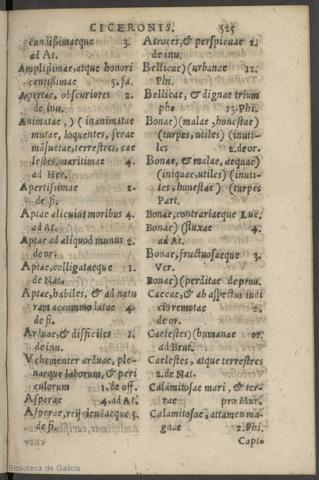 CICERONIS. 525
cundißimaeque 3.
ad At.
Amplißimae, atque honori
centißimae 5. fa.
Apertae, obscuriores 2.
de inu.
Animatae, ) ( inanimatae
mutae, loquentes, ferae
māsuetae, terrestres, cae
lestes, maritimae 4.
ad Her.
Apertissimae 2.
de fi.
Aptae alicuius moribus 4.
ad At.
Aptae ad aliquod munus 2.
de or.
Aptae, colligataeque 1.
de Nat.
Aptae, habiles, & ad natu
ram accommodatae 4.
de fi.
Arduae, & difficiles 1.
de inu.
Vehementer arduae, ple-
naeque laborum, & peri
culorum 1. de off.
Asperae 4. ad At.
Asperae, 5.
de fi.
Atroces, & perspicuae 2.
de inu.
Bellicae) (urbanae 12.
Phi.
Bellicae, & dignae trium
pho 13. Phi.
Bonae) (malae, honestae)
(turpes, utiles) (inuti-
les 2. de or.
Bonae, & malae, aequae)
(iniquae, utiles) (inuti-
les, honestae) (turpes
Part.
Bonae, contrariaeque Luc.
Bonae) (fluxae 4.
ad At.
Bonae, fructuosaeque 3.
Ver.
Bonae) (perditae de prou.
Caecae, & ab aspectus iudi
cio remotae 2.
de or.
Caelestes) (humanae or.
ad Brut.
Caelestes, atque terrestres
2. de Nat.
Calamitosae mari, & ter-
rae pro Mur.
Calamitosae, attamen ma-
gnae 2. Phi.
Capi-
Biblioteca de Galicia